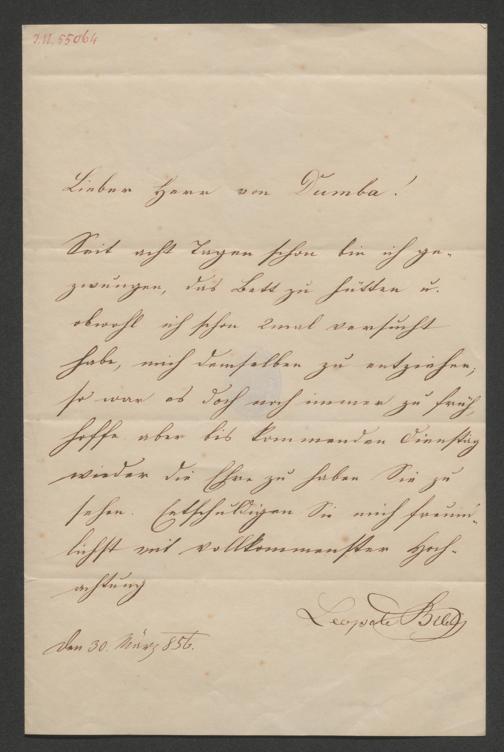 I.N. 55064
Lieber Herr von Dumba!
Seit acht Tagen schon bin ich ge-
zwungen, das Bett zu hütten u.
obwohl ich schon 2mal versucht
habe, mich demselben zu entziehen,
so war es doch noch immer zu früh,
hoffe aber bis kommenden Dienstag
wieder die Ehre zu haben Sie zu
sehen. Entschuldigen Sie mich freund-
lichst mit vollkommenster Hoch-
achtung
Leopold
den 30. März 856.